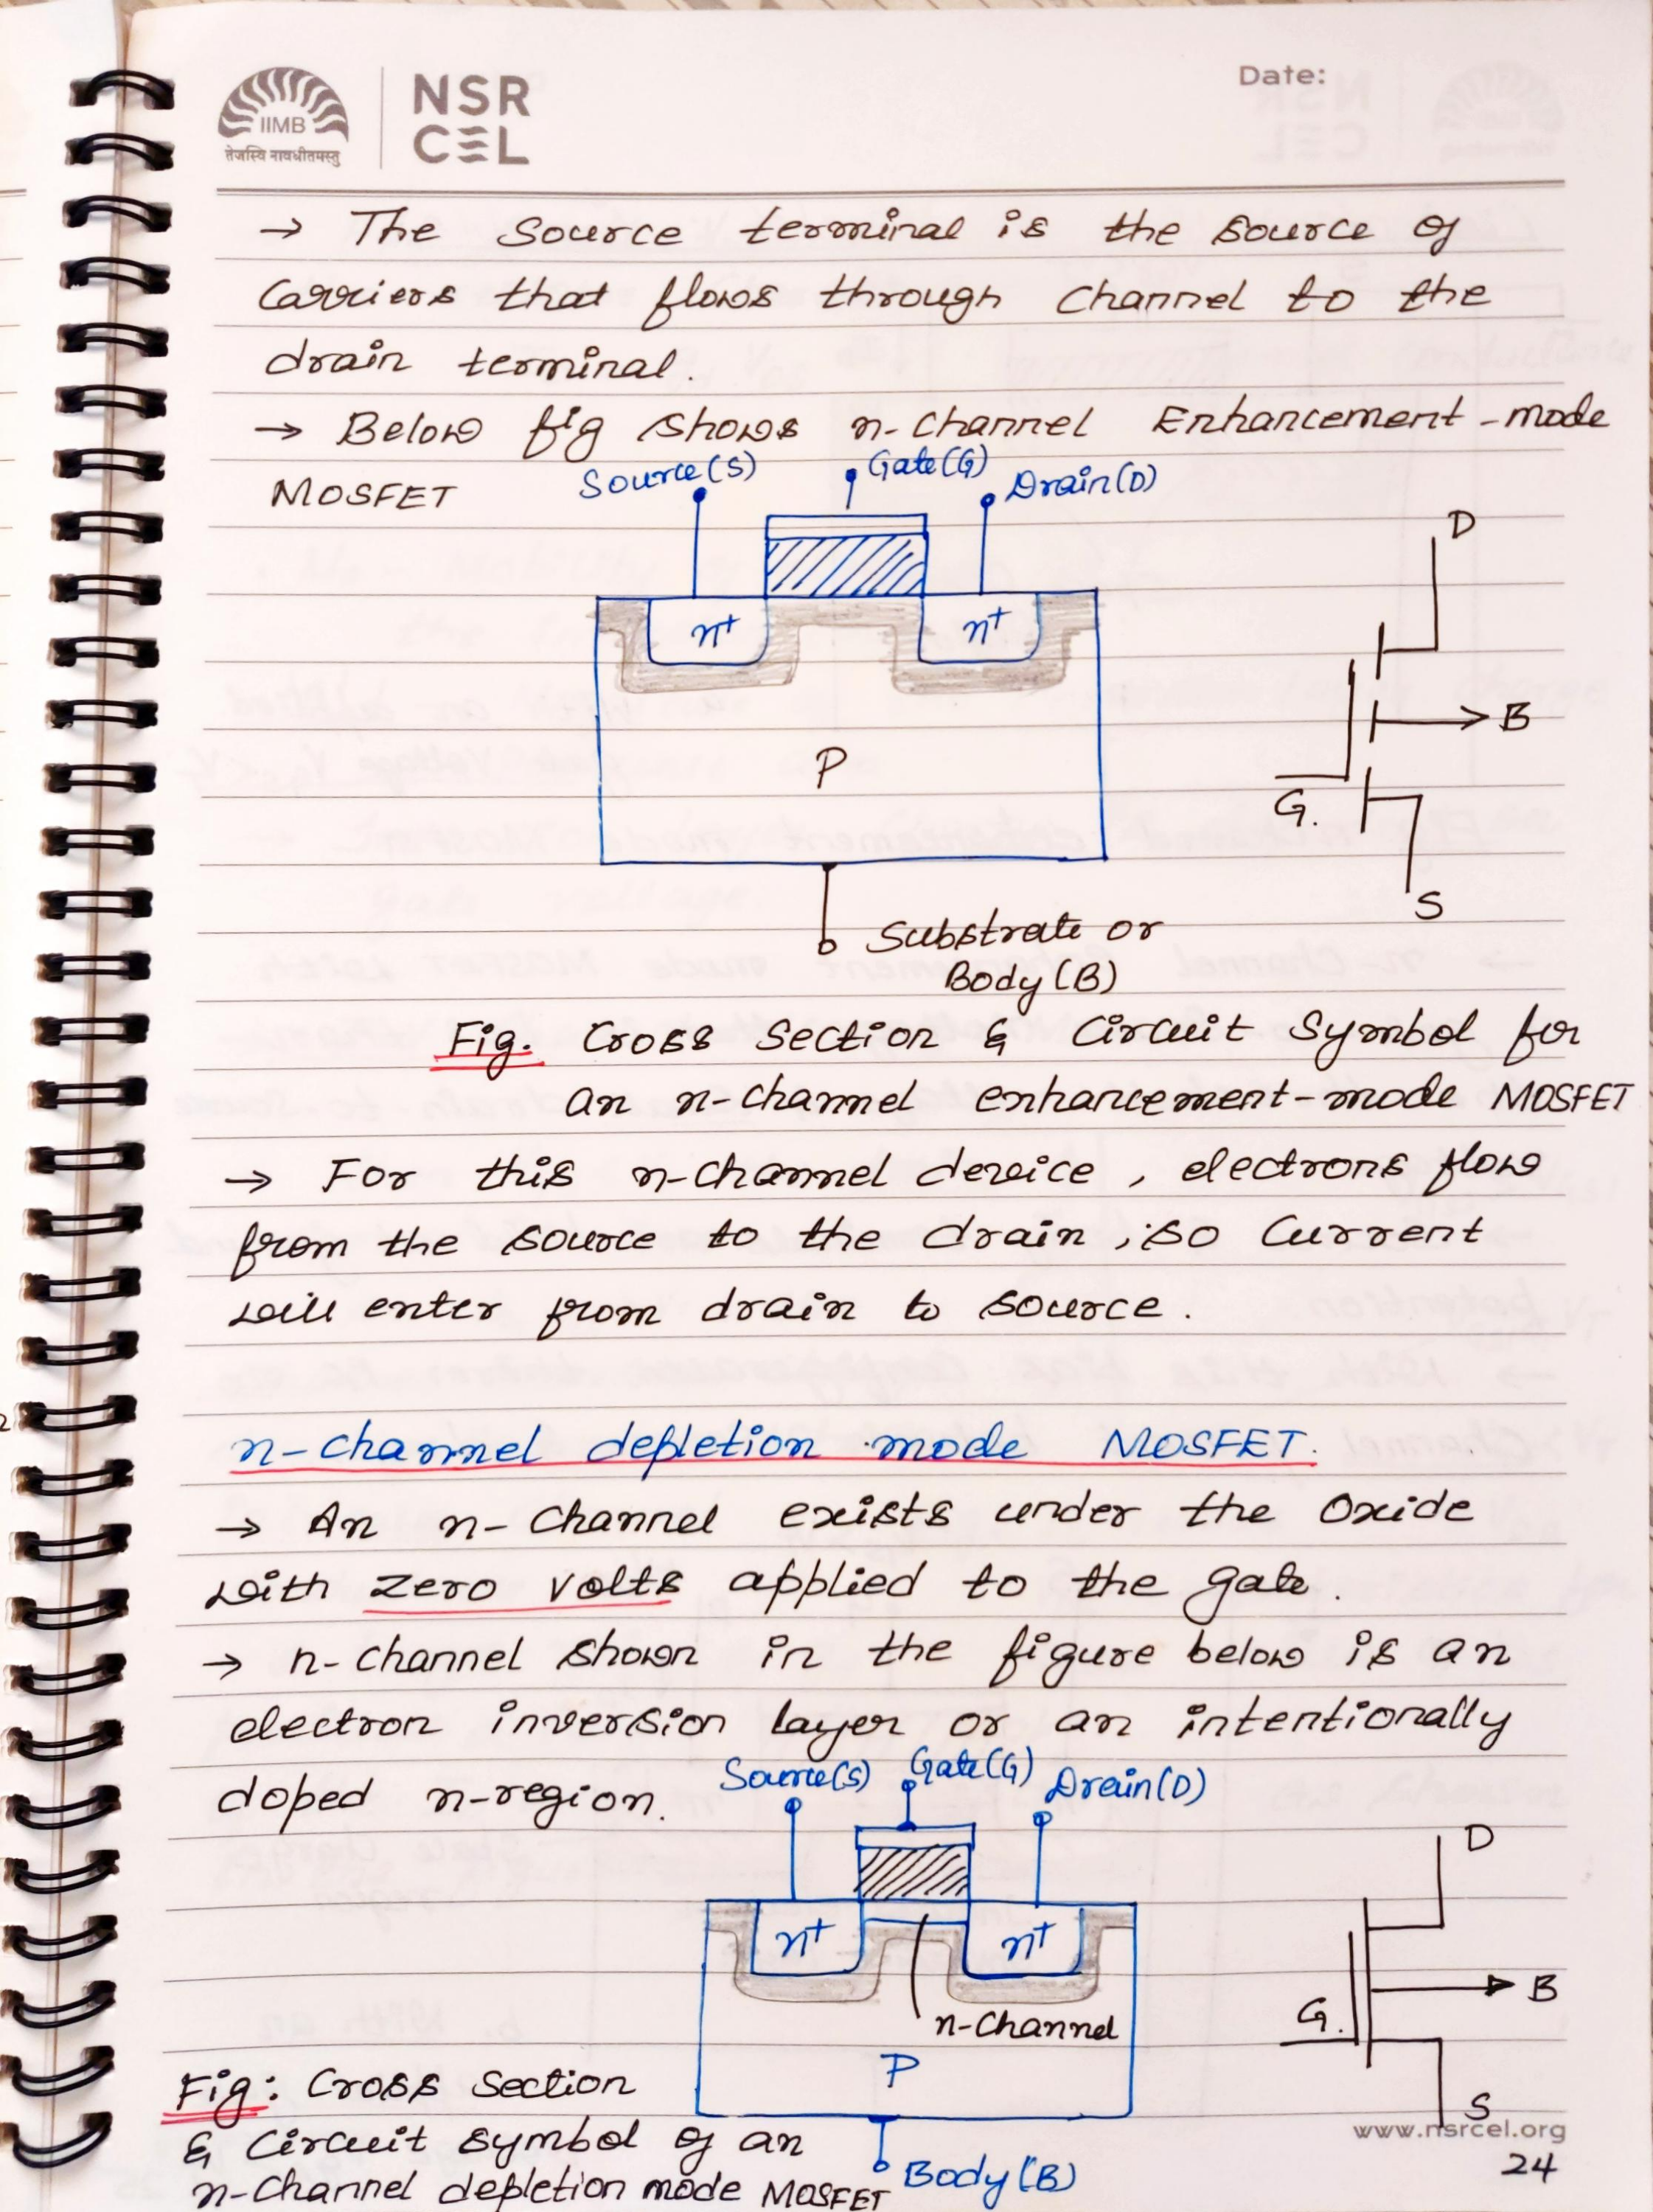 IIMB
तेजस्वि नावधीतमस्तु
NSR
CEL
Date:
→ The source terminal is the source of
carriers that flows through channel to the
drain terminal.
→ Below fig shows n-channel Enhancement-mode
MOSFET
Source(S)
Gate(G)
Drain(D)
n+
n+
P
Substrate or
Body(B)
D
B
G.
S
Fig. Cross section & Circuit Symbol for
an n-channel enhancement-mode MOSFET
→ For this n-channel device, electrons flow
from the source to the drain, so current
will enter from drain to source.
n-channel depletion mode MOSFET.
→ An n-channel exists under the oxide
with zero volts applied to the gate.
→ n-channel shown in the figure below is an
electron inversion layer or an intentionally
doped n-region.
Source(S)
Gate(G)
Drain(D)
n+
n+
n-channel
P
Body(B)
D
B
G.
S
Fig: Cross section
& Circuit symbol of an
n-channel depletion mode MOSFET
www.nsrcel.org
24